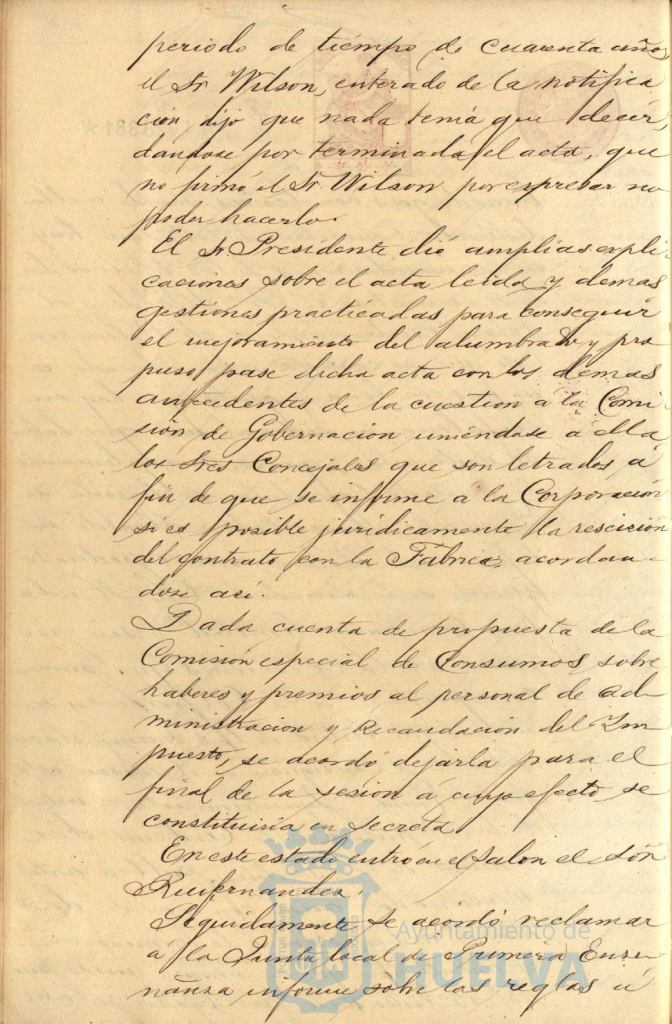 periodo de tiempo de cuarenta años,
el Sr Wilson, enterado de la notifica
cion dijo que nada tenia que decir,
dandose por terminada el acta, que
no firmó el Sr Wilson por expresar no
poder hacerlo.
El Sr Presidente dió amplias expli-
caciones sobre el acta leida y demas
gestiones practicadas para conseguir
el mejoramiento del alumbrado y pro
puso pase dicha acta con los demas
antecedentes de la cuestion á la Comi
sión de Gobernacion uniéndose á ella
los Sres Concejales que son letrados, á
fin de que se informe á la Corporacion
si es posible juridicamente la rescicion
del contrato con la Fabrica, acordan-
dose aci.
Dada cuenta de propuesta de la
Comision especial de Consumos sobre
haberes y premios al personal de ad-
ministracion y Recaudacion del Im
puesto, se acordó dejarla para el
final de la sesion á cuyo efecto se
constituiria en secreta.
En este estado entró en el Salon el Señ
Ruifernandez.
Seguidamente se acordó reclamar
á la Junta local de Primera Ense-
ñanza informe sobre las reglas á
Ayuntamiento de
HUELVA